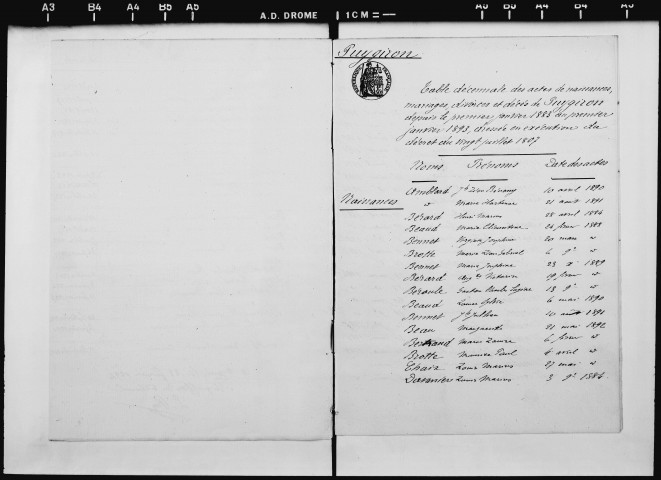 A3 B4 A4 B5 A5 A.D. DROME 1CM A5 B5 A4 B4 A3
Puygiron
Table décennale des actes de naissances,
mariages, divorces et décès de Puygiron
depuis le premier janvier 1883 au premier
janvier 1893, dressée en exécution du
décret du vingt juillet 1807
Noms Prénoms Date des actes
Naissances
Amblard 10 avril 1890
" Marie 21 août 1891
Bérard Henri Marius 28 avril 1886
Beaud Marie Clémentine 26 février 1888
Bonnet Joséphine 20 mars "
Brotte Marie 6 9e "
Bonnet Marie Joséphine 23 Xe 1889
Bérard 19 février "
Béroule Gaston Charles 18 9e "
Beaud Louise 6 mai 1890
Bonnet Jh Jullien 10 août 1891
Beau Marguerite 21 mai 1892
Bertrand Marie Louise 6 février "
Brotte Maurice Paul 4 avril "
Chaix Louis Marius 27 mai "
Louis Marius 3 9e 1884